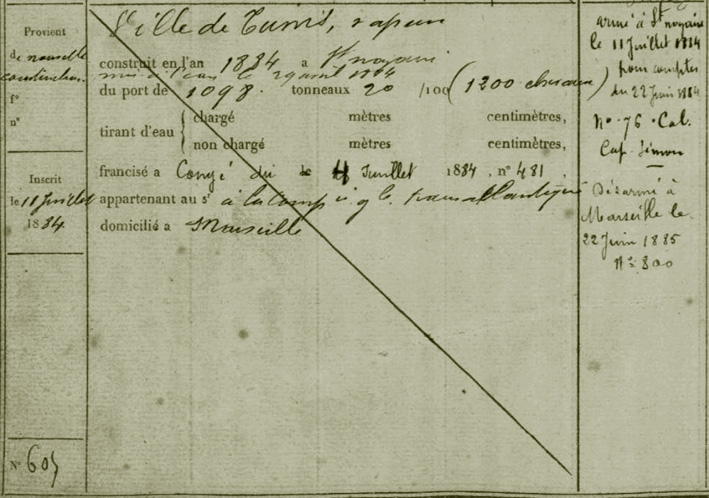 Provient
de nouvelle
construction.
f°
n°
Inscrit
le 11 Juillet
1884.
N° 605
Ville de Tunis, vapeur
construit en l'an 1884 a St nazaire
mis à l'eau le 29 avril 1884
du port de 1098 tonneaux 20 /100 (1200 chevaux)
tirant d'eau { chargé mètres centimètres,
non chargé mètres centimètres,
francisé a Congé du 4 Juillet 1884, n° 481,
appartenant au sr à la Comp ie gle transatlantique
domicilié a Marseille
armé à St nazaire
le 11 Juillet 1884
pour compter
du 22 Juin 1884
N° 76 Cal.
Cap. Simon
Désarmé à
Marseille le
22 Juin 1885
N° 800